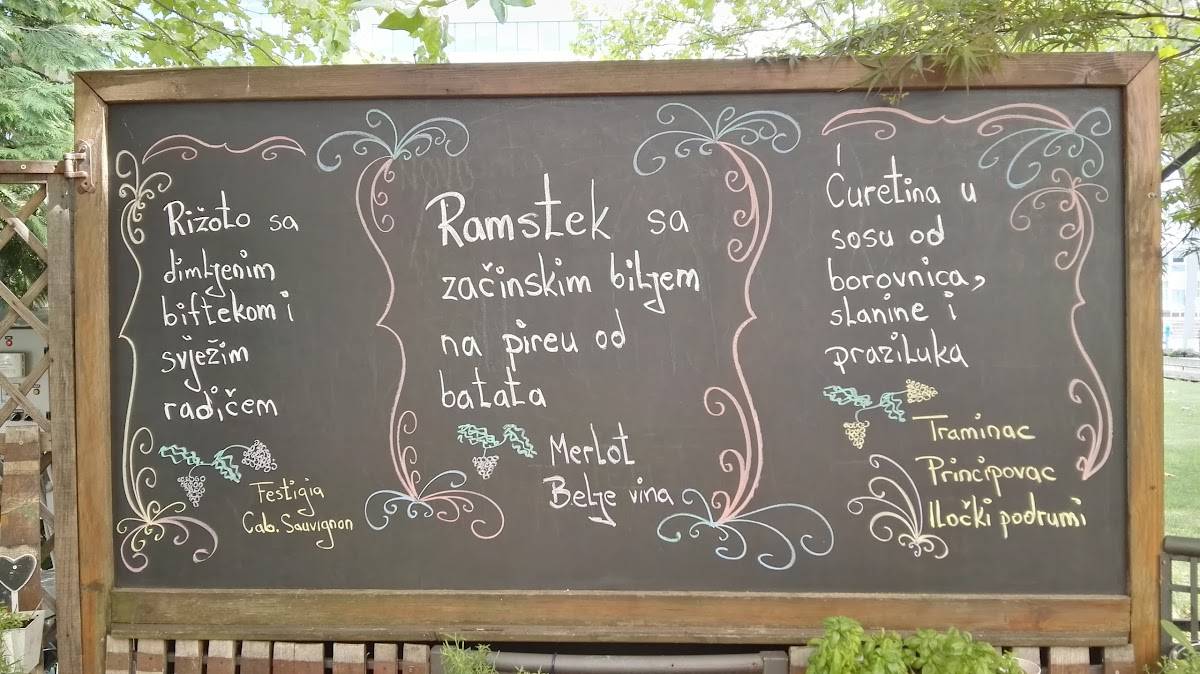 Rižoto sa
dimljenim
biftekom i
svježim
radičem
Festigia
Cab. Sauvignon
Ramstek sa
začinskim biljem
na pireu od
batata
Merlot
Belje vina
Ćuretina u
sosu od
borovnica,
slanine i
praziluka
Traminac
Principovac
Iločki podrumi